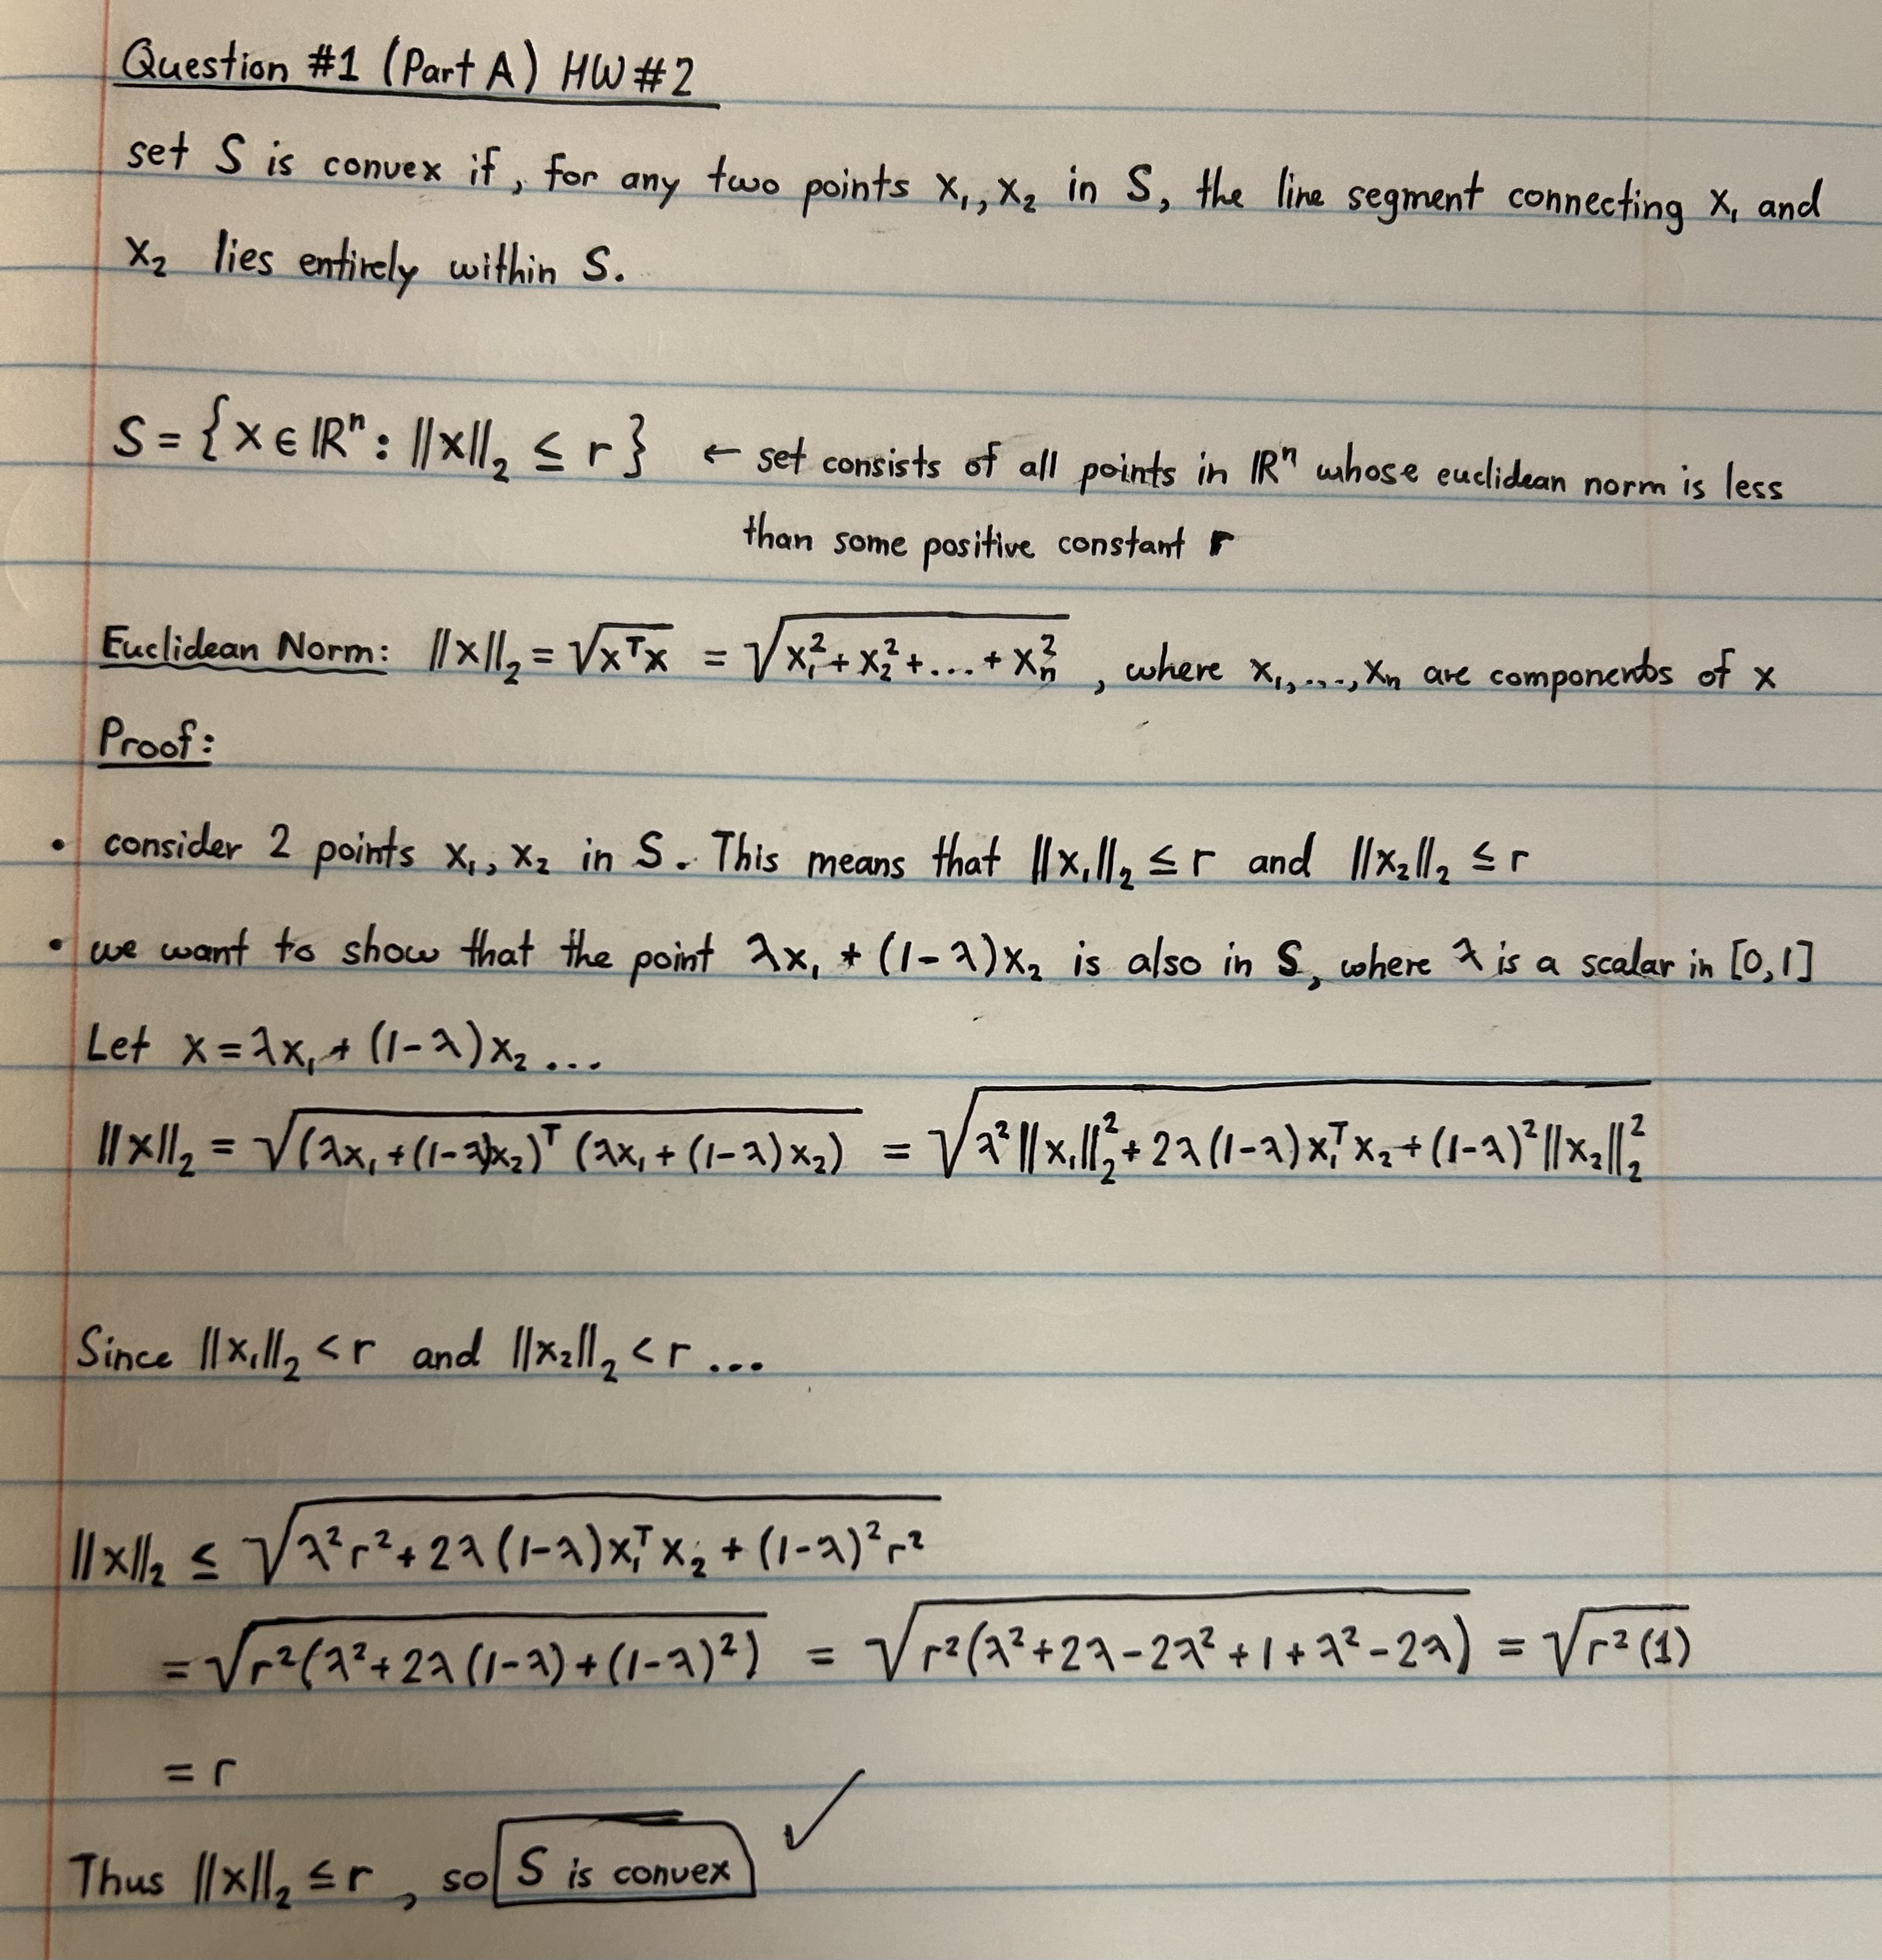 Question #1 (Part A) HW #2
set S is convex if, for any two points x₁, x₂ in S, the line segment connecting x₁ and
x₂ lies entirely within S.
S = {x ∈ ℝⁿ : ||x||₂ ≤ r} ← set consists of all points in ℝⁿ whose euclidean norm is less
than some positive constant r
Euclidean Norm: ||x||₂ = √(xᵀx) = √(x₁² + x₂² + ... + xₙ²) , where x₁, ..., xₙ are components of x
Proof:
• consider 2 points x₁, x₂ in S. This means that ||x₁||₂ ≤ r and ||x₂||₂ ≤ r
• we want to show that the point λx₁ + (1-λ)x₂ is also in S, where λ is a scalar in [0,1]
Let x = λx₁ + (1-λ)x₂ ...
||x||₂ = √((λx₁ + (1-λ)x₂)ᵀ (λx₁ + (1-λ)x₂)) = √(λ²||x₁||₂² + 2λ(1-λ)x₁ᵀx₂ + (1-λ)²||x₂||₂²)
Since ||x₁||₂ < r and ||x₂||₂ < r ...
||x||₂ ≤ √(λ²r² + 2λ(1-λ)x₁ᵀx₂ + (1-λ)²r²)
= √(r²(λ² + 2λ(1-λ) + (1-λ)²)) = √(r²(λ² + 2λ - 2λ² + 1 + λ² - 2λ)) = √(r²(1))
= r
Thus ||x||₂ ≤ r , so S is convex ✓